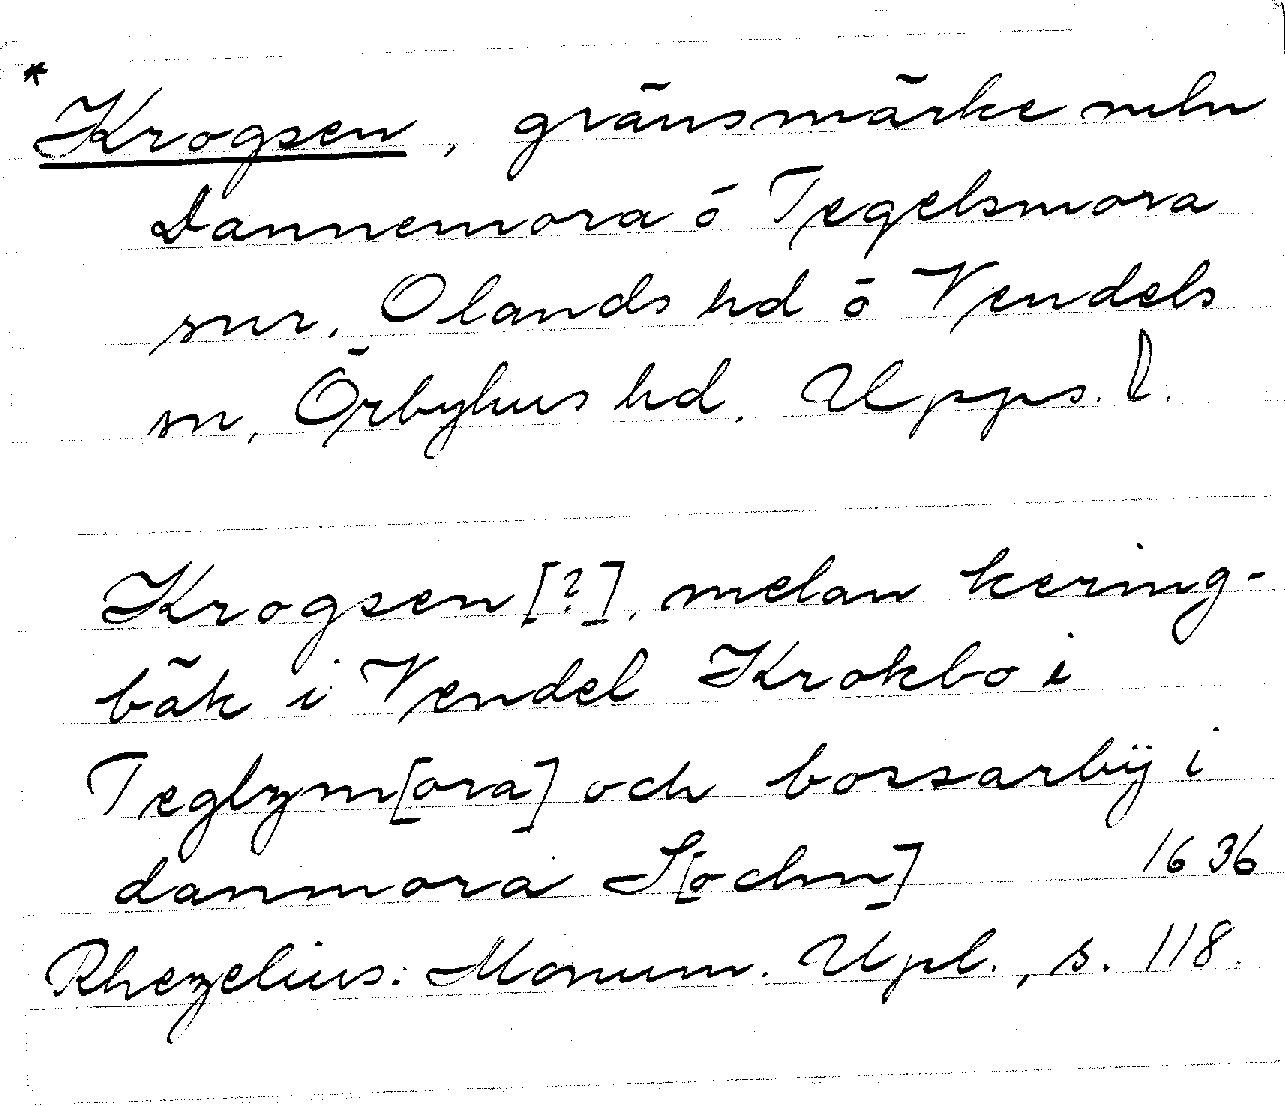 *
Krogsen, gränsmärke mln
Dannemora o Tegelsmora
snr, Olands hd o Vendels
sn, Örbyhus hd. Upps. l.
Krogsen [?], melan kering-
bäk i Vendel Krokbo i
Teglzm[ora] och borsarbÿ i
danmora S[ochn] 1636
Rhezelius: Monum. Upl., s. 118.